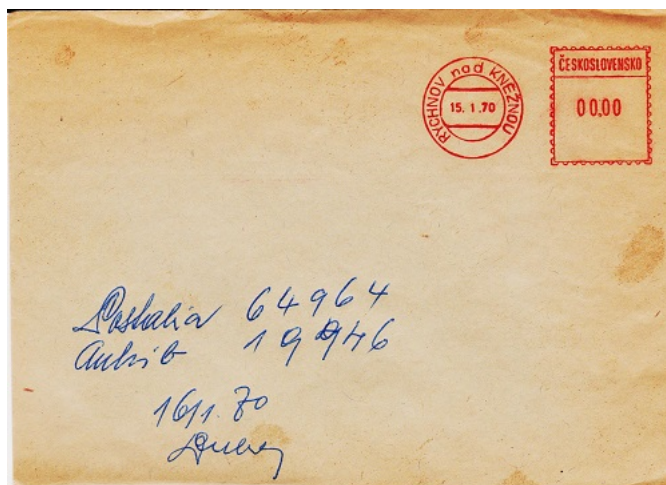 RYCHNOV nad KNĚŽNOU
15. 1. 70
ČESKOSLOVENSKO
00,00
Postalia 64964
19946
16/1. 70